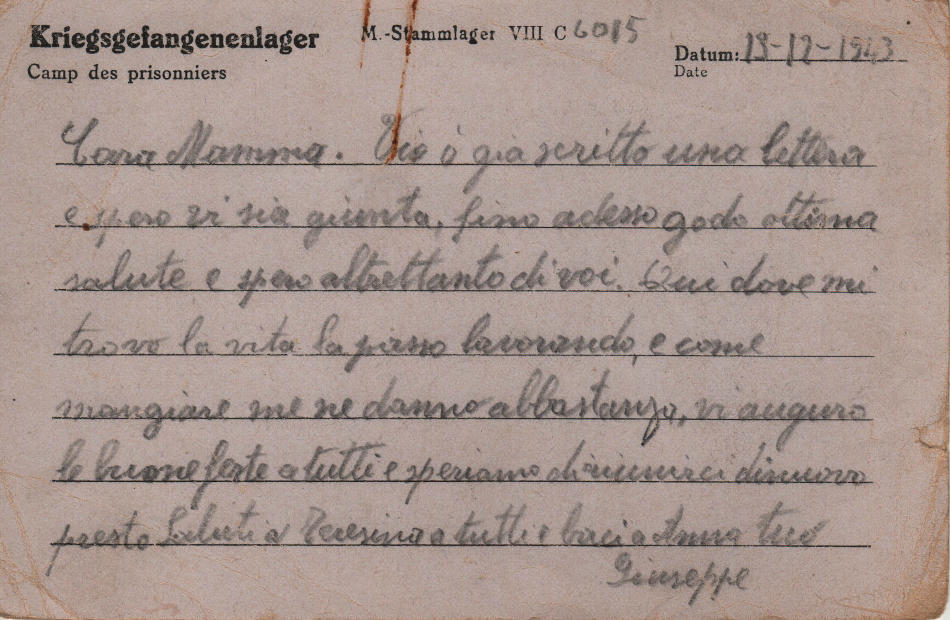 Kriegsgefangenenlager
Camp des prisonniers
M.-Stammlager VIII C 6015
Datum: 18-12-1943
Date
Cara Mamma. Vio ò gia scritto una lettera
e spero vi sia giunta, fino adesso godo ottima
salute e spero altrettanto di voi. Qui dove mi
trovo la vita la passo lavorando, e come
mangiare me ne danno abbastanza, vi auguro
le buone feste a tutti e speriamo di riunirci di nuovo
presto Saluti a Teresina a tutti e baci a Anna tuo
Giuseppe